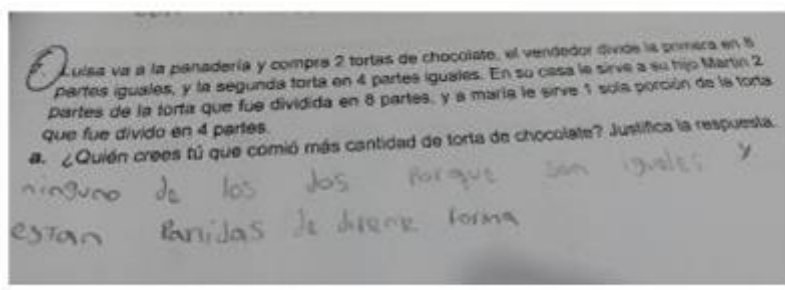 Luisa va a la panadería y compra 2 tortas de chocolate, el vendedor divide la primera en 8
partes iguales, y la segunda torta en 4 partes iguales. En su casa le sirve a su hijo Martin 2
partes de la torta que fue dividida en 8 partes, y a maria le sirve 1 sola porción de la torta
que fue divido en 4 partes.
a. ¿Quién crees tú que comió más cantidad de torta de chocolate? Justifica la respuesta.
ninguno de los dos Porque son iguales y
estan Partidas de forma